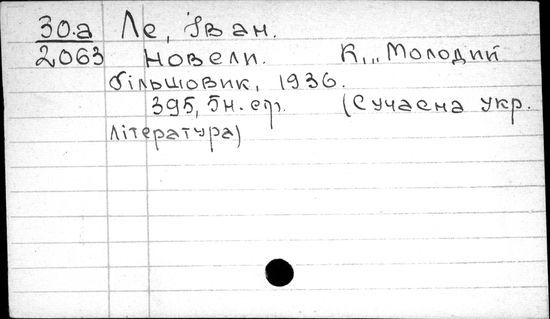 30.а Ле, Іван.
2063 Новели. К., „Молодий
більшовик, 1936.
395, 5 н. стр. (Сучасна укр.
література)